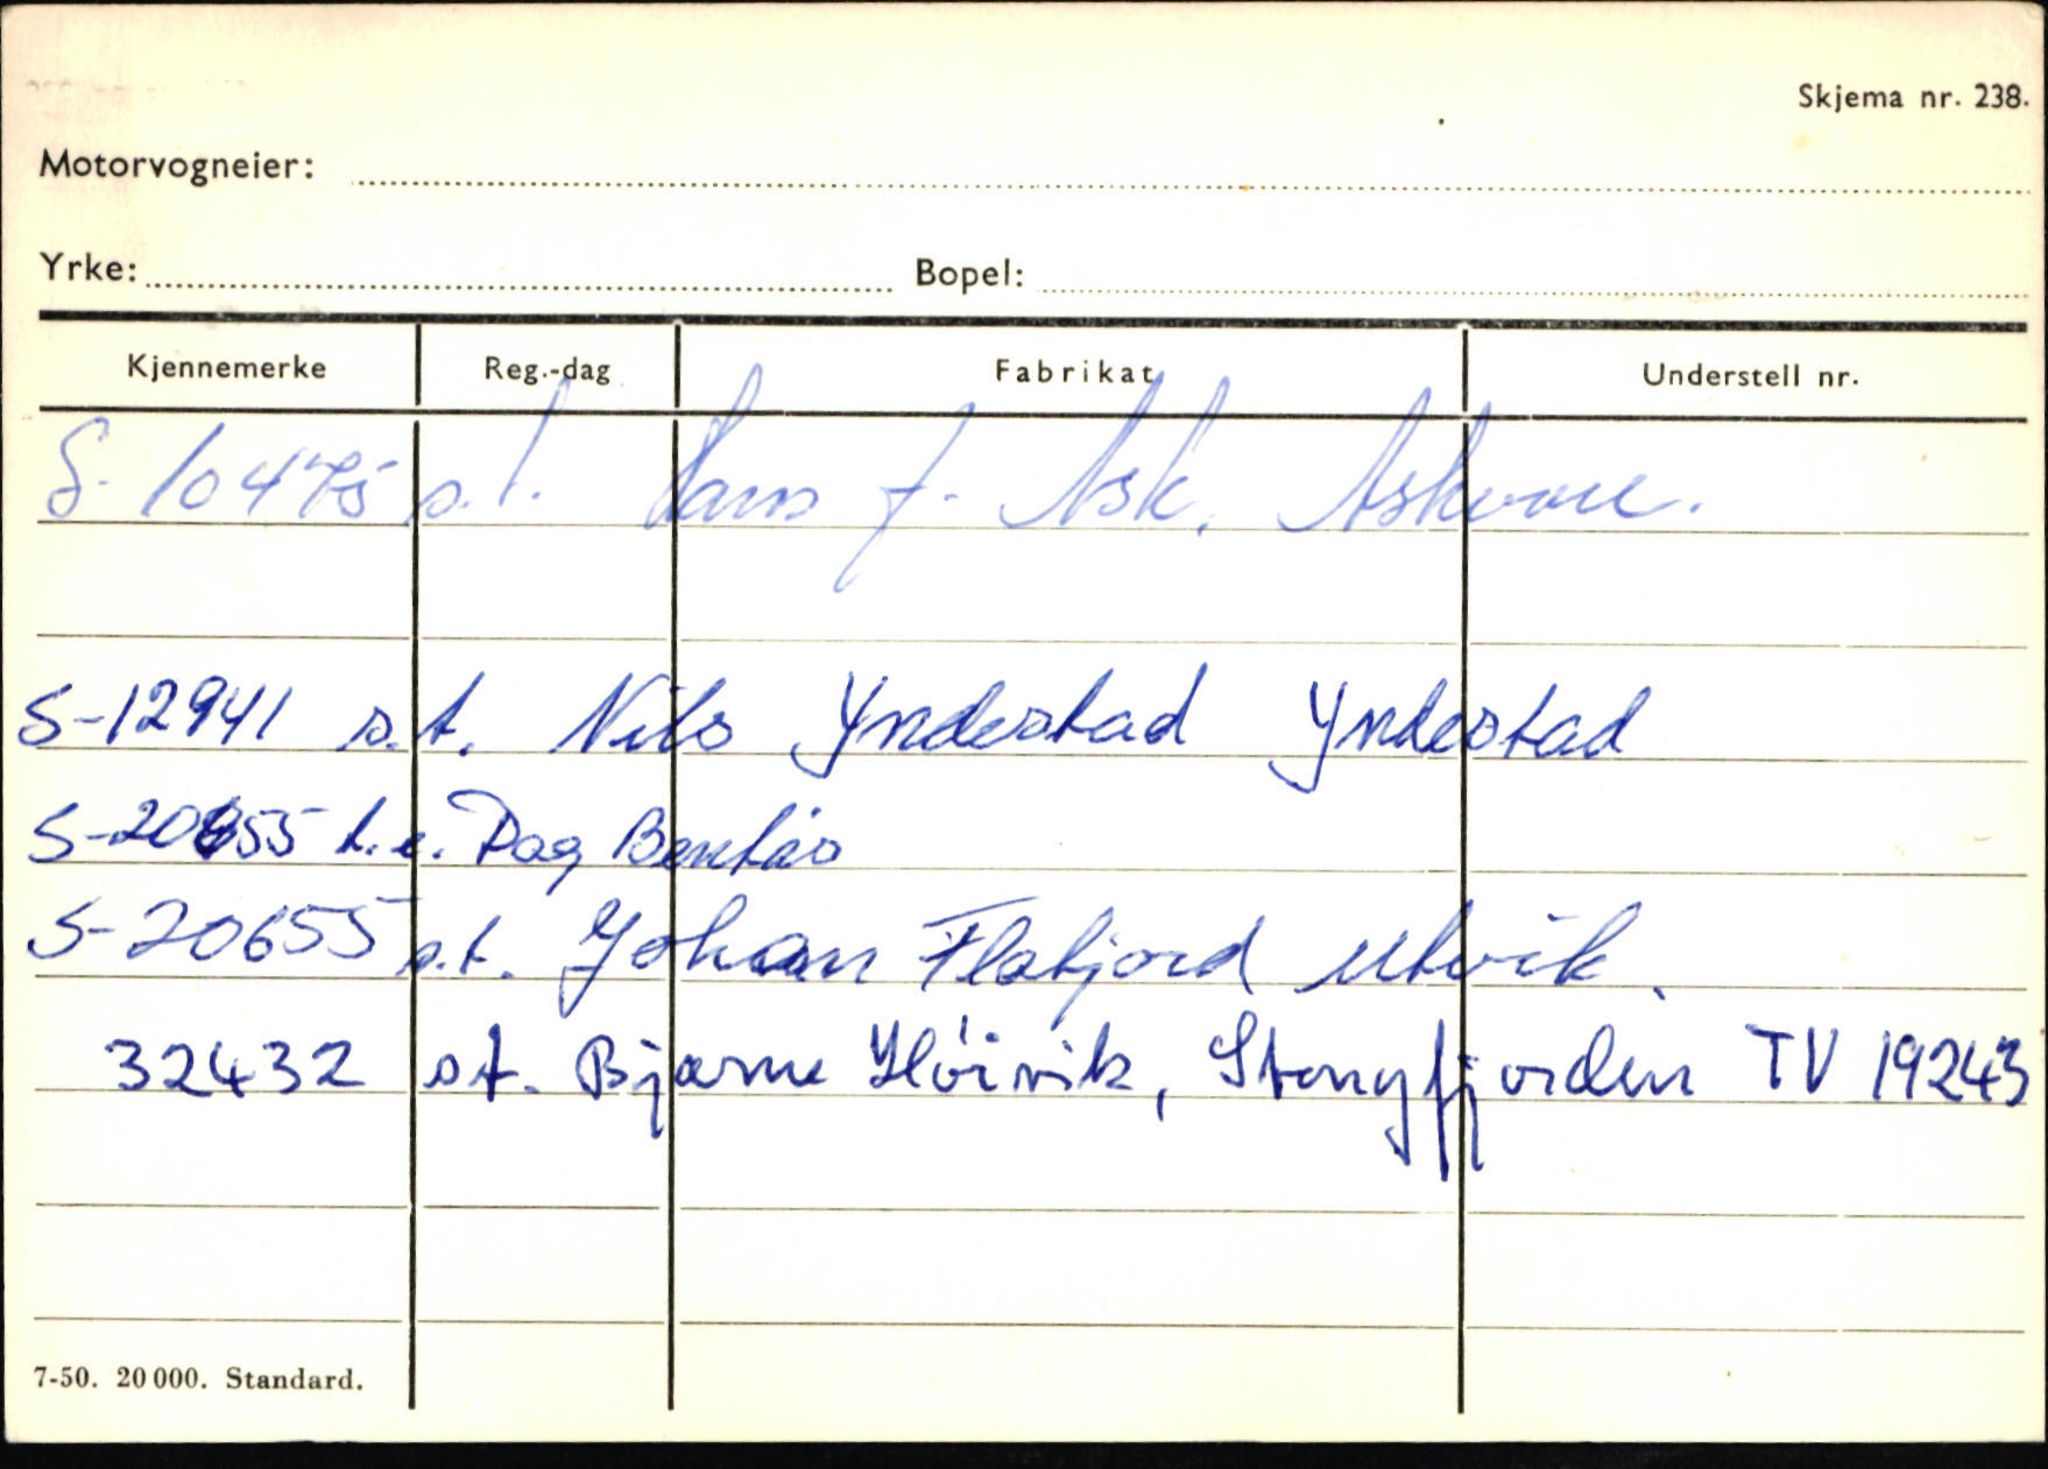 Skjema nr. 238.
Motorvogneier:
Yrke: Bopel:
Kjennemerke Reg.-dag Fabrikat Understell nr.
S-10475 s.t. Hans J. Ask. Askvoll.
S-12941 s.t. Nils Yndestad Yndestad
S-20655 t.e. Dag
S-20655 s.t. Johan Flatjord Utvik.
32432 st. Bjarne Høivik, Stongfjorden TV 19243
7-50. 20 000. Standard.